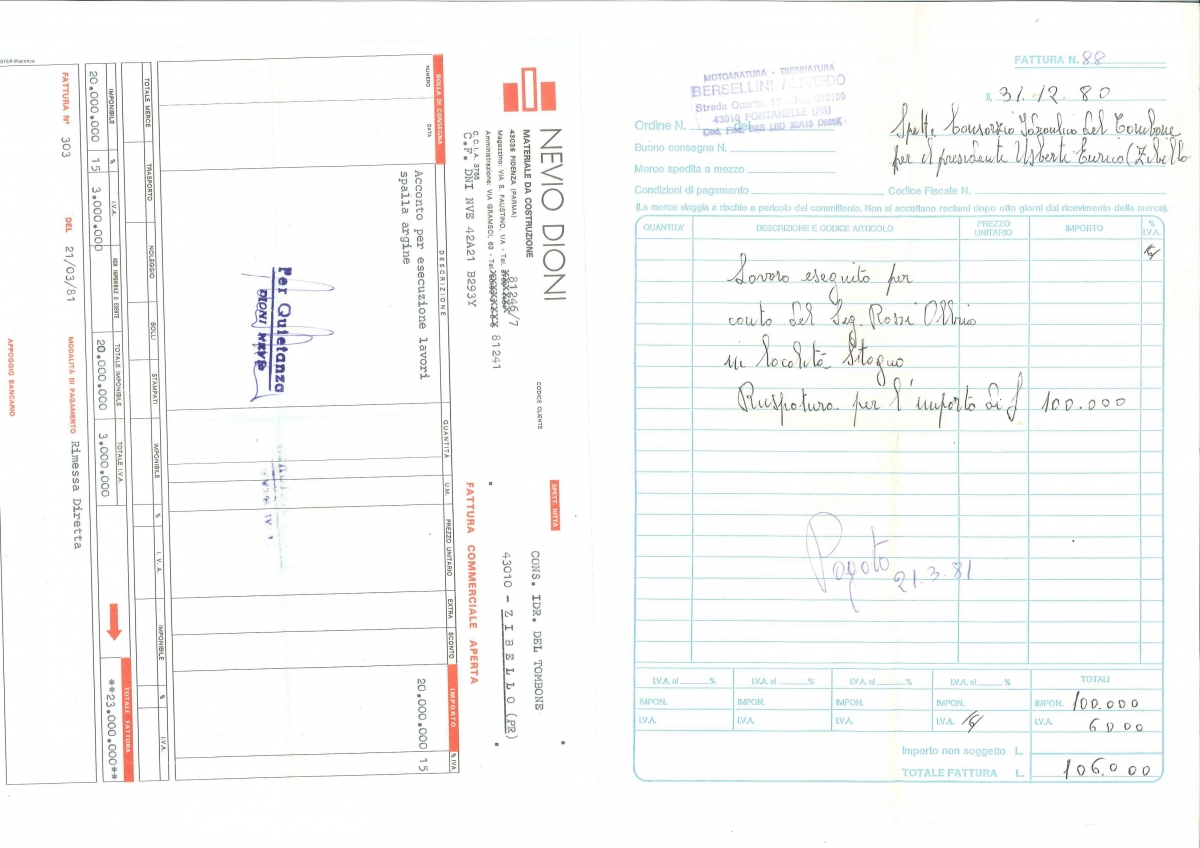 STER-Piacenza
NEVIO DIONI
MATERIALE DA COSTRUZIONE
43036 FIDENZA (PARMA)
Magazzino: VIA S. FAUSTINO, 1/A - Tel. 81246/7
Amministrazione: VIA GRAMSCI, 63 - Tel. 81241
C.C.I.A. 3755
C.F. DNI NVE 42A21 B293Y
CODICE CLIENTE
SPETT. DITTA
CONS. IDR. DEL TOMBONE
43010 - ZIBELLO (PR)
FATTURA COMMERCIALE APERTA
BOLLA DI CONSEGNA
NUMERO DATA
DESCRIZIONE QUANTITÀ U.M. PREZZO UNITARIO EXTRA SCONTO IMPORTO % IVA
Acconto per esecuzione lavori
spalla argine
20.000.000 15
Per Quietanza
DIONI NEVIO
TOTALE MERCE TRASPORTO NOLEGGIO BOLLI STAMPATI IMPONIBILE % I.V.A. IMPONIBILE % I.V.A.
IMPONIBILE % I.V.A. NON IMPONIBILE O ESENTE TOTALE IMPONIBILE TOTALE I.V.A. TOTALE FATTURA
20.000.000 15 3.000.000 20.000.000 3.000.000 **23.000.000**
FATTURA N° 303 DEL 21/03/81 MODALITÀ DI PAGAMENTO Rimessa Diretta
APPOGGIO BANCARIO
FATTURA N. 88
MOTOARATURA - TREBBIATURA
BERSELLINI ALFREDO
Strada Quarta, 15 - Tel. 570100
43010 FONTANELLE (PR)
Cod. Fisc.
li, 31.12.80
Ordine N. del
Spett. Consorzio Idraulico del Tombone
per il presidente Usberti Enrico (Zibello
Buono consegna N.
Merce spedita a mezzo
Condizioni di pagamento Codice Fiscale N.
(La merce viaggia a rischio e pericolo del committente. Non si accettano reclami dopo otto giorni dal ricevimento della merce).
QUANTITA' DESCRIZIONE E CODICE ARTICOLO PREZZO UNITARIO IMPORTO % I.V.A.
Lavoro eseguito per
conto del Sig. Rossi
in località Stagno
Ruspatura per l'importo di £ 100.000
Pagato
21.3.81
I.V.A. al % I.V.A. al % I.V.A. al % I.V.A. al % TOTALI
IMPON. IMPON. IMPON. IMPON. IMPON. 100.000
I.V.A. I.V.A. I.V.A. I.V.A. I.V.A. 6000
Importo non soggetto L.
TOTALE FATTURA L. 106.000